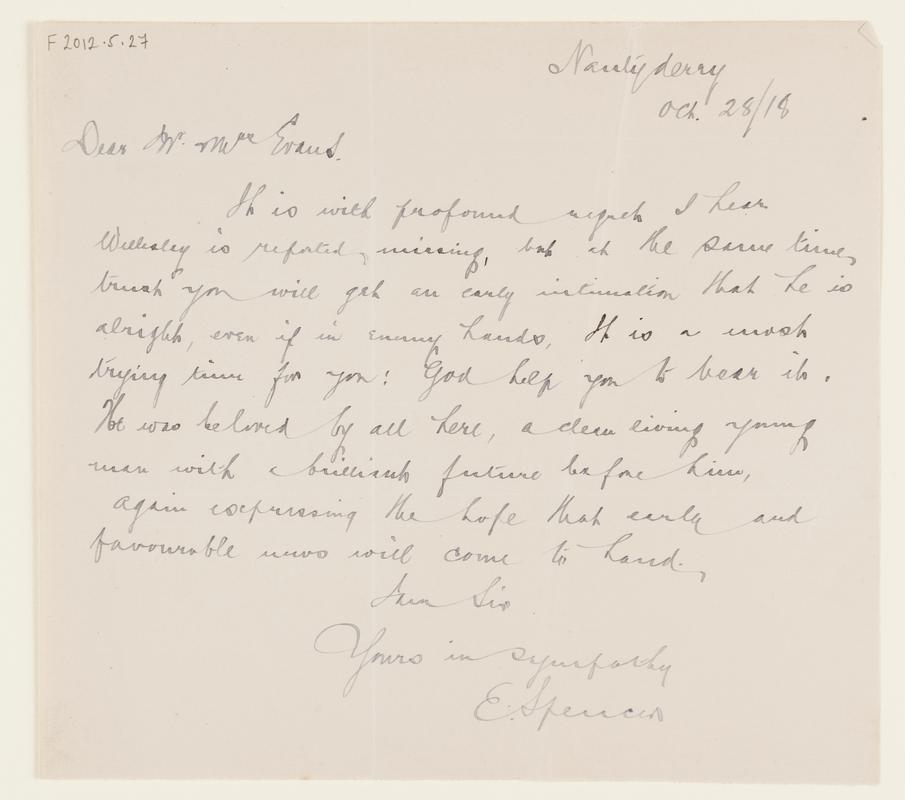 F2012.5.27
Nantyderry
Oct. 28/18
Dear Mr. & Mrs Evans.
It is with profound regret I hear
Wellesley is reported, missing, but at the same time,
trust you will get an early intimation that he is
alright, even if in enemy hands, It is a most
trying time for you! God help you to bear it.
He was beloved by all here, a clean living young
man with a brilliant future before him,
again expressing the hope that early and
favourable news will come to hand,
I am Sir
Yours in sympathy
E. Spencer